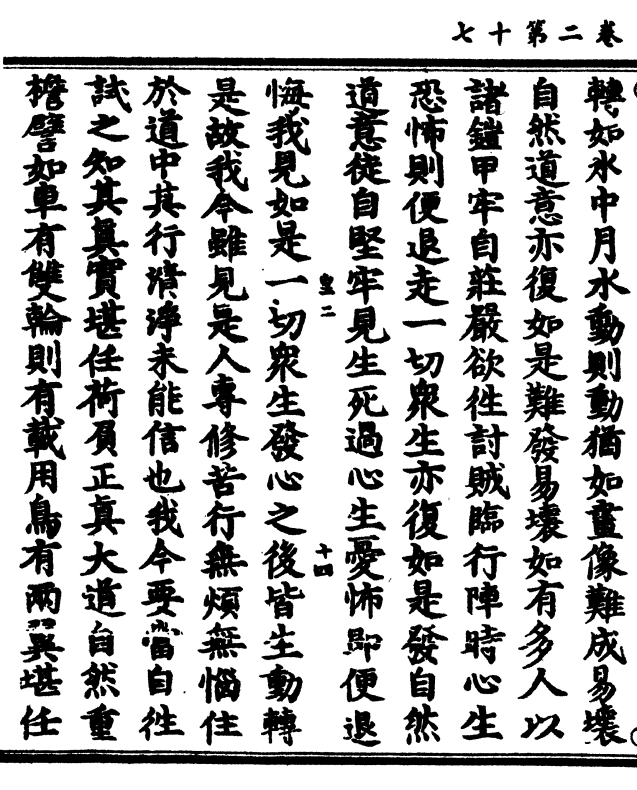 卷二第十七
轉如水中月水動則動猶如畫像難成易壞
自然道意亦復如是難發易壞如有多人以
諸鎧甲牢自莊嚴欲往討賊臨行陣時心生
恐怖則便退走一切衆生亦復如是發自然
道意徒自堅牢見生死過心生憂怖即便退
皇二
十四
悔我見如是一切衆生發心之後皆生動轉
是故我今雖見是人專修苦行無煩無惱住
於道中其行清淨未能信也我今要當自往
試之知其真實堪任荷負正真大道自然重
擔譬如車有雙輪則有載用鳥有兩翼堪任